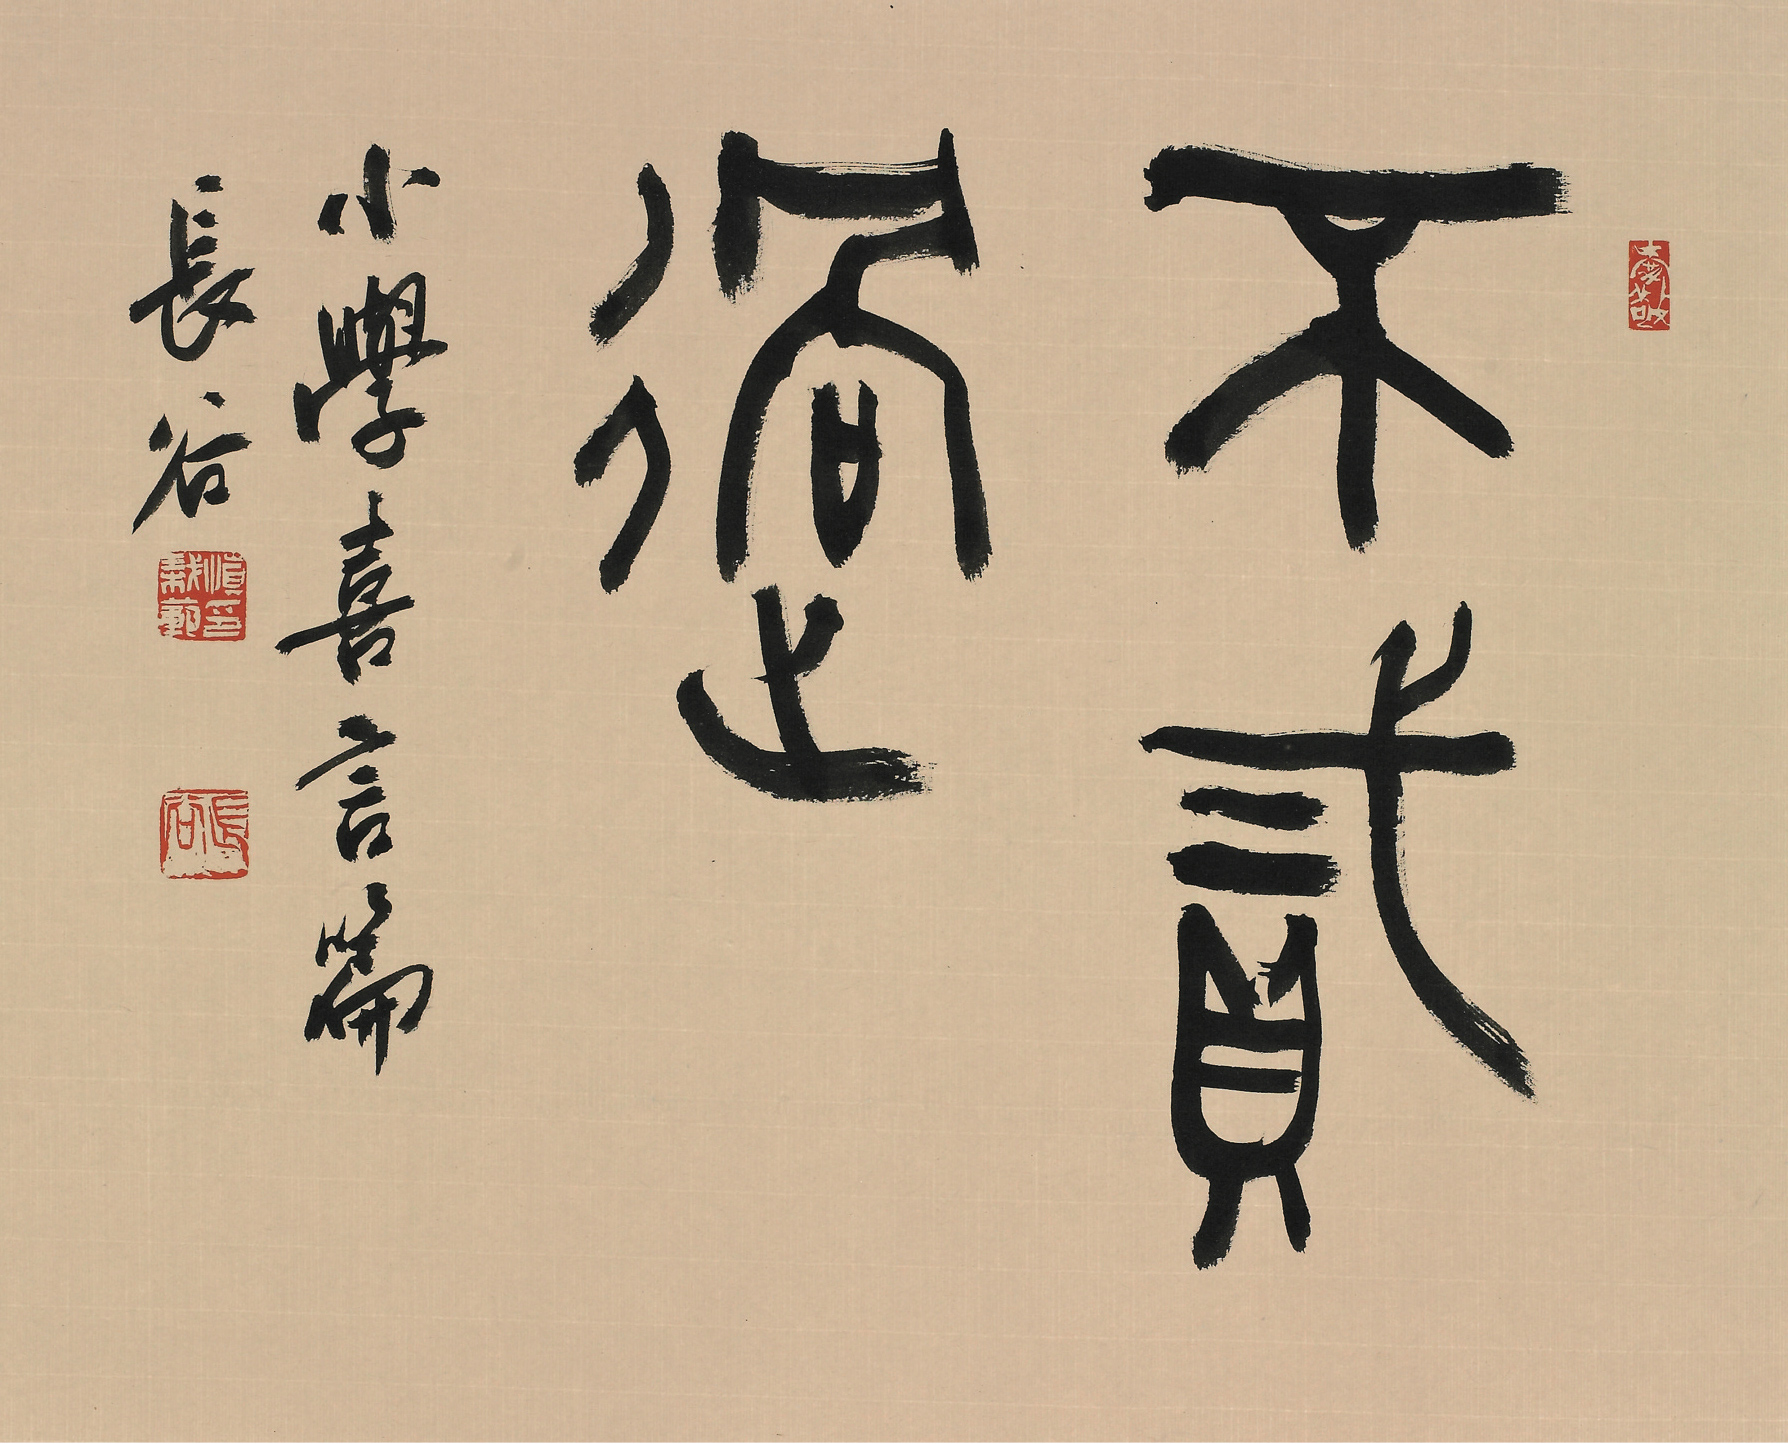 不貳
過
小學嘉言篇
長谷
長谷